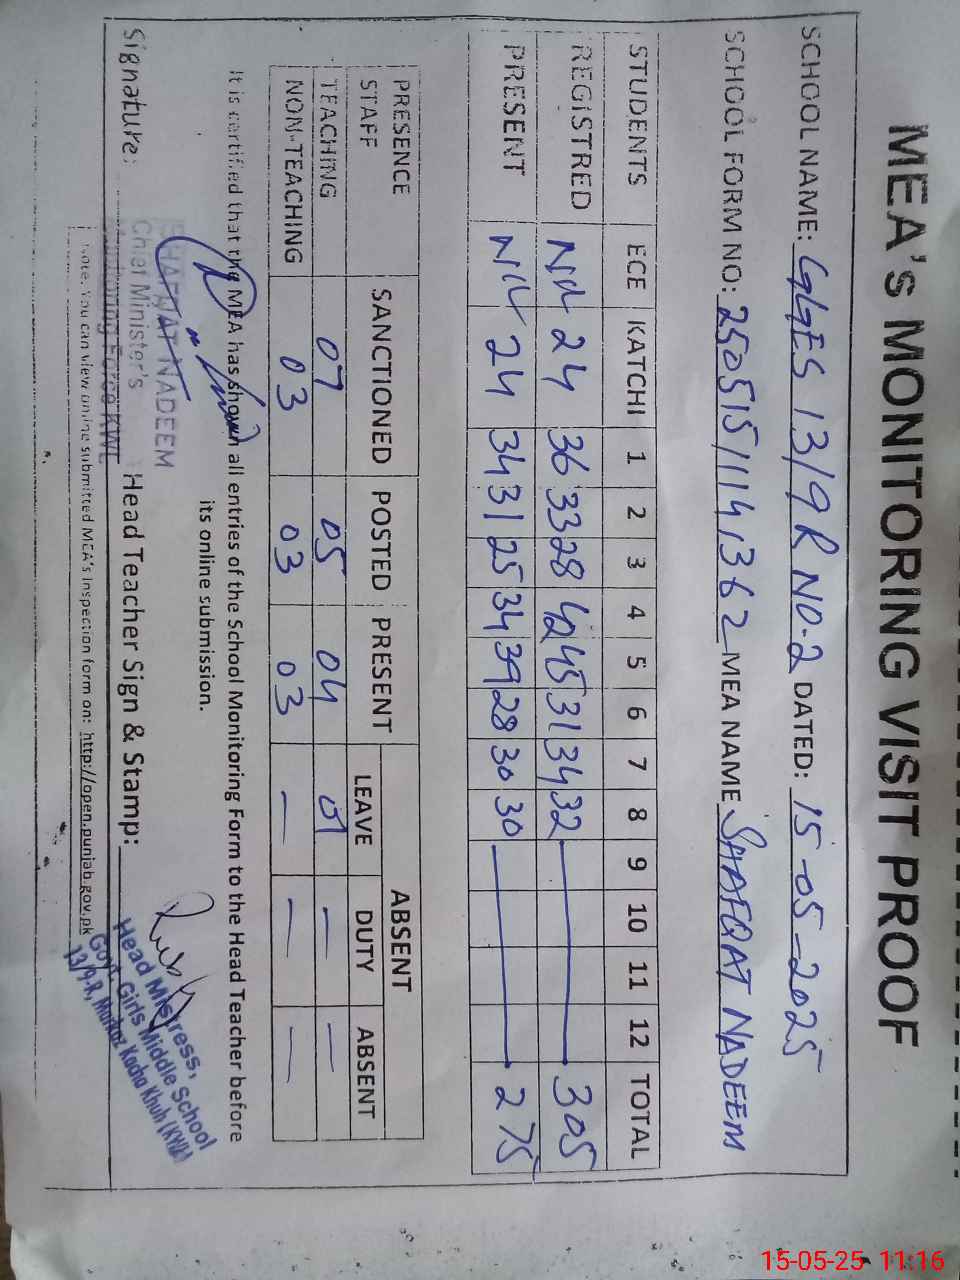 MEA's MONITORING VISIT PROOF
SCHOOL NAME: GGES 13/9R NO.2 DATED: 15-05-2025
SCHOOL FORM NO: 250515111141362 MEA NAME SHAFQAT NADEEM
STUDENTS ECE KATCHI 1 2 3 4 5 6 7 8 9 10 11 12 TOTAL
REGISTRED Nil 24 36 33 28 42 45 31 34 32 305
PRESENT Nil 24 34 31 25 34 39 28 30 30 275
PRESENCE STAFF SANCTIONED POSTED PRESENT ABSENT
LEAVE DUTY ABSENT
TEACHING 07 05 04 01 — —
NON-TEACHING 03 03 03 — — —
It is certified that the MEA has shown all entries of the School Monitoring Form to the Head Teacher before
its online submission.
SHAFQAT NADEEM
Chief Minister's
Monitoring Force KWL
Signature: Head Teacher Sign & Stamp:
Head Mistress,
Govt. Girls Middle School
13/9-R, Markaz Kacha Khuh (KWL)
Note: You can view online submitted MEA's inspection form on: http://open.punjab.gov.pk
15-05-25 11:16